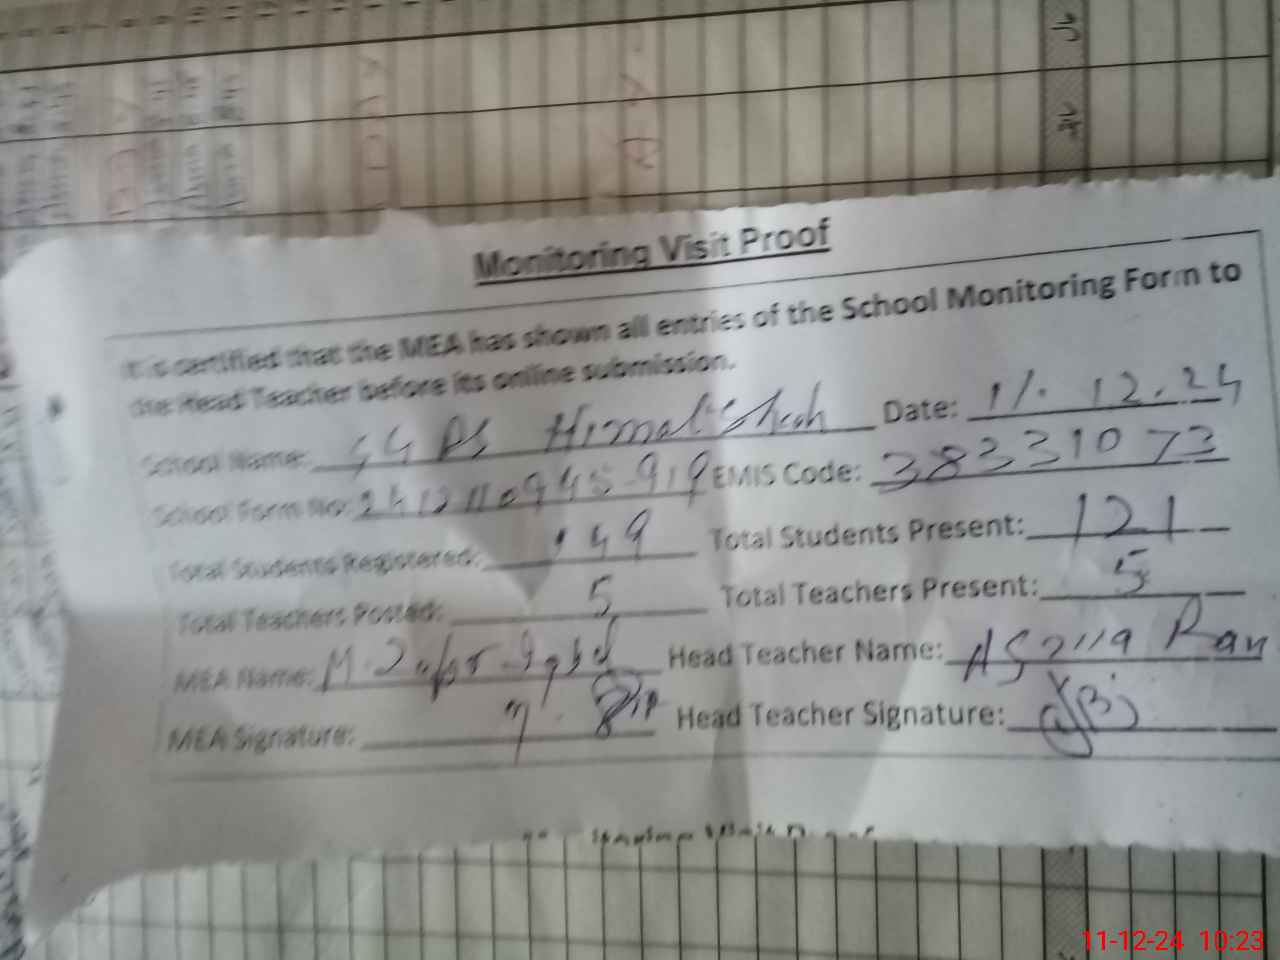 Monitoring Visit Proof
It is certified that the MEA has shown all entries of the School Monitoring Form to
the Head Teacher before its online submission.
School Name: GGPS Hirmat Shah Date: 11.12.24
School Form No: 2412110945-919 EMIS Code: 38331073
Total Students Registered: 149 Total Students Present: 121
Total Teachers Posted: 5 Total Teachers Present: 5
MEA Name: M. Zafar Iqbal Head Teacher Name:
MEA Signature: Head Teacher Signature:
11-12-24 10:23